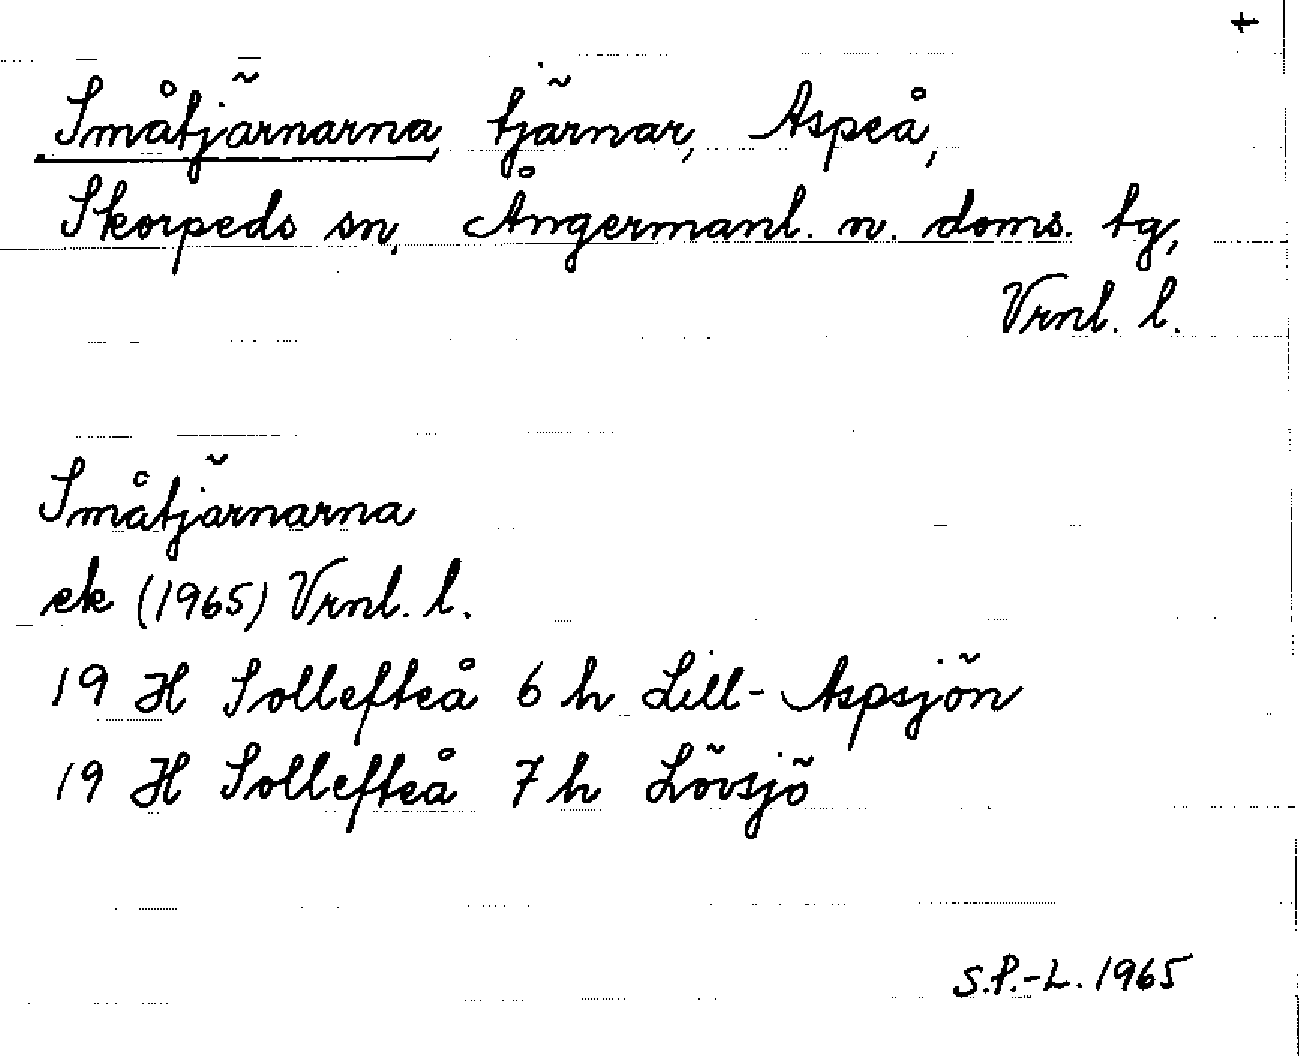 +
Småtjärnarna, tjärnar, Aspeå,
Skorpeds sn, Ångermanl. n. doms. tg,
Vrnl. l.
Småtjärnarna
ek (1965) Vrnl. l.
19 H Sollefteå 6 h Lill-Aspsjön
19 H Sollefteå 7 h Lövsjö
S.P.-L. 1965